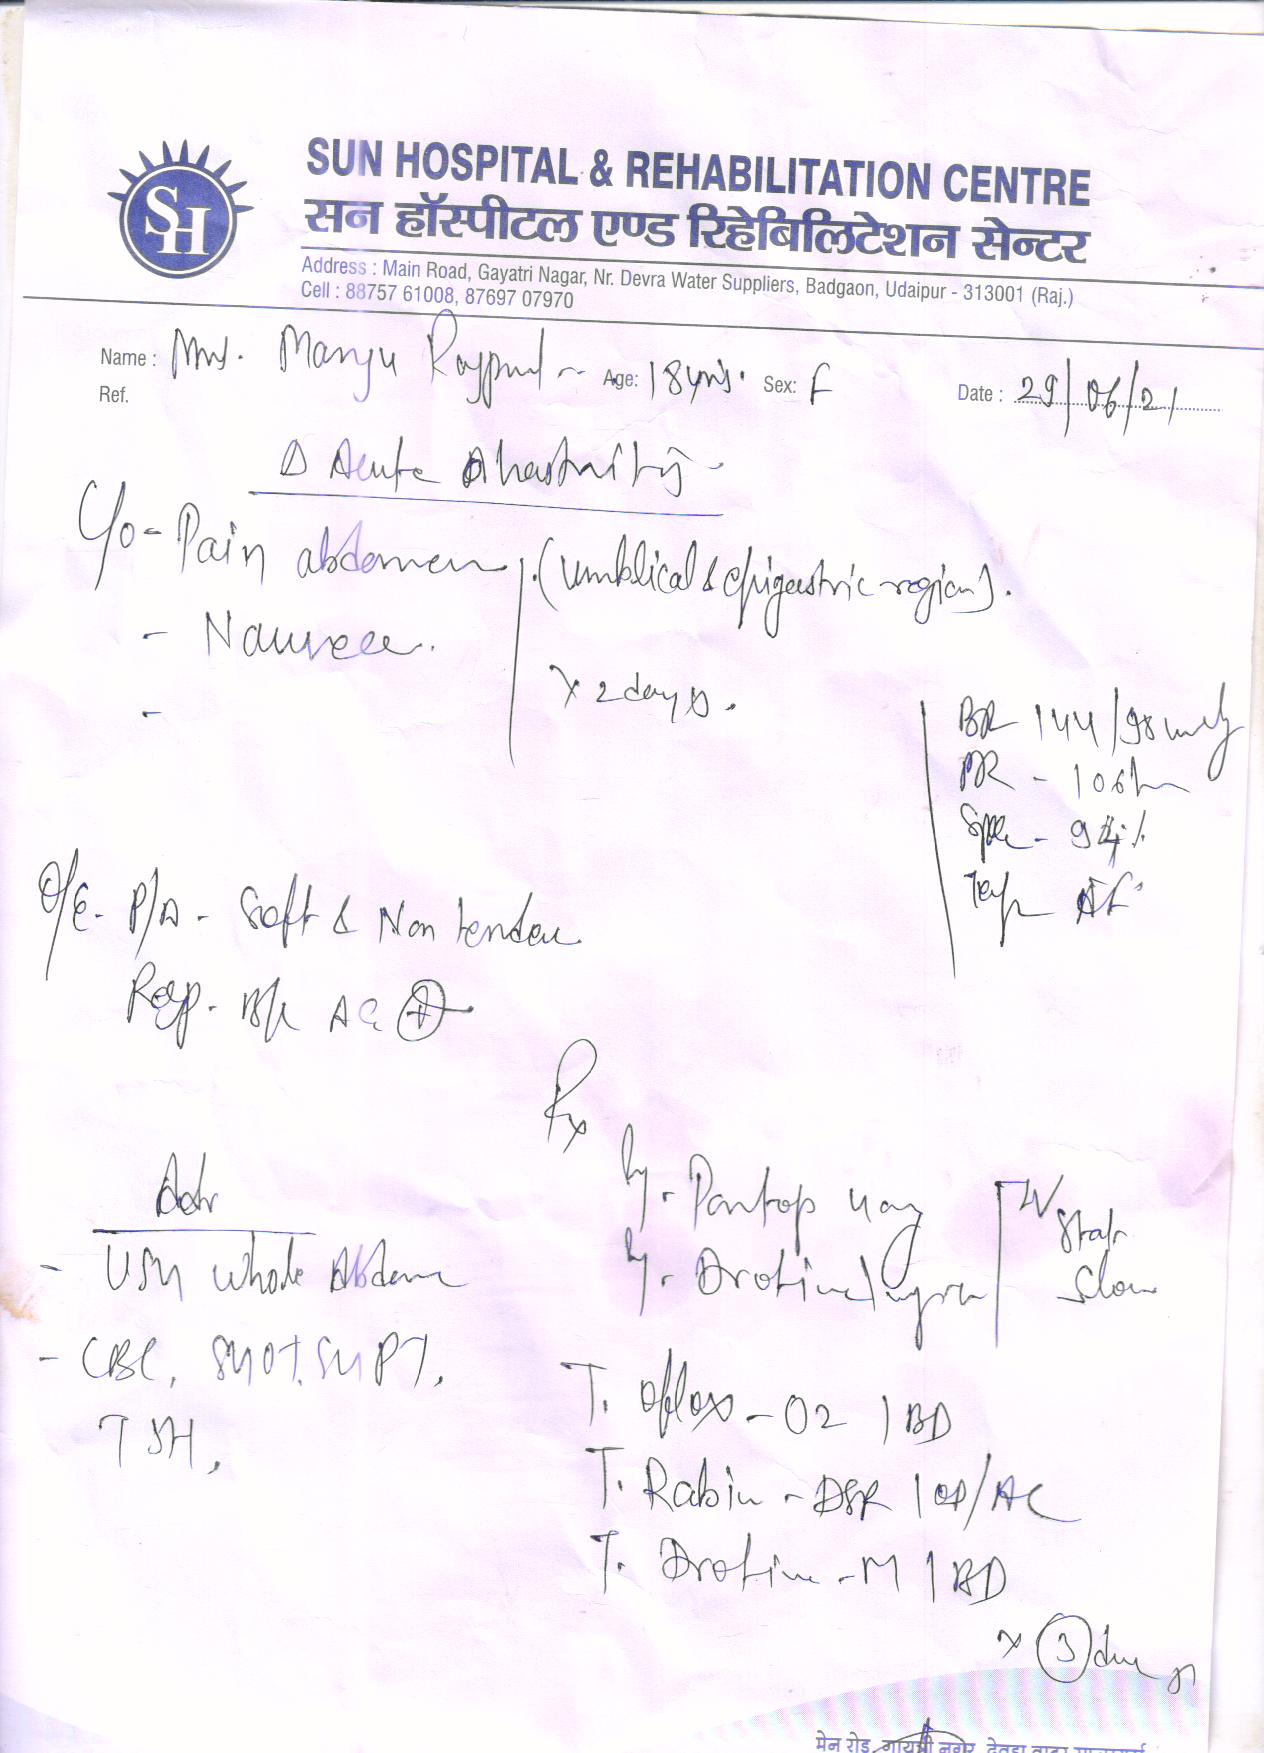 SH
SUN HOSPITAL & REHABILITATION CENTRE
सन हॉस्पीटल एण्ड रिहेबिलिटेशन सेन्टर
Address : Main Road, Gayatri Nagar, Nr. Devra Water Suppliers, Badgaon, Udaipur - 313001 (Raj.)
Cell : 88757 61008, 87697 07970
Name : Mrs. Manju Rajput Age: 18 yrs. Sex: F Date : 29/06/21
Ref.
Δ Acute
C/o - Pain abdomen (umblical & epigastric region).
- Nausea.
x 2 days.
-
BP 144/98
PR - 106
SpO2 - 94%
Temp Af
O/E - P/A - Soft & Non tender
Resp. B/L AE +
Rx
Adv
Inj. Pantop 40mg IV Stat
Inj. Drotin Slow
- USG whole Abdomen
- CBC, SGOT, SGPT,
TSH,
T. Oflox - O2 1 BD
T. Rabin - DSR 1 OD/AC
T. Drotin - M 1 BD
x 3 days
मेन रोड, गायत्री नगर, देवड़ा वाटर